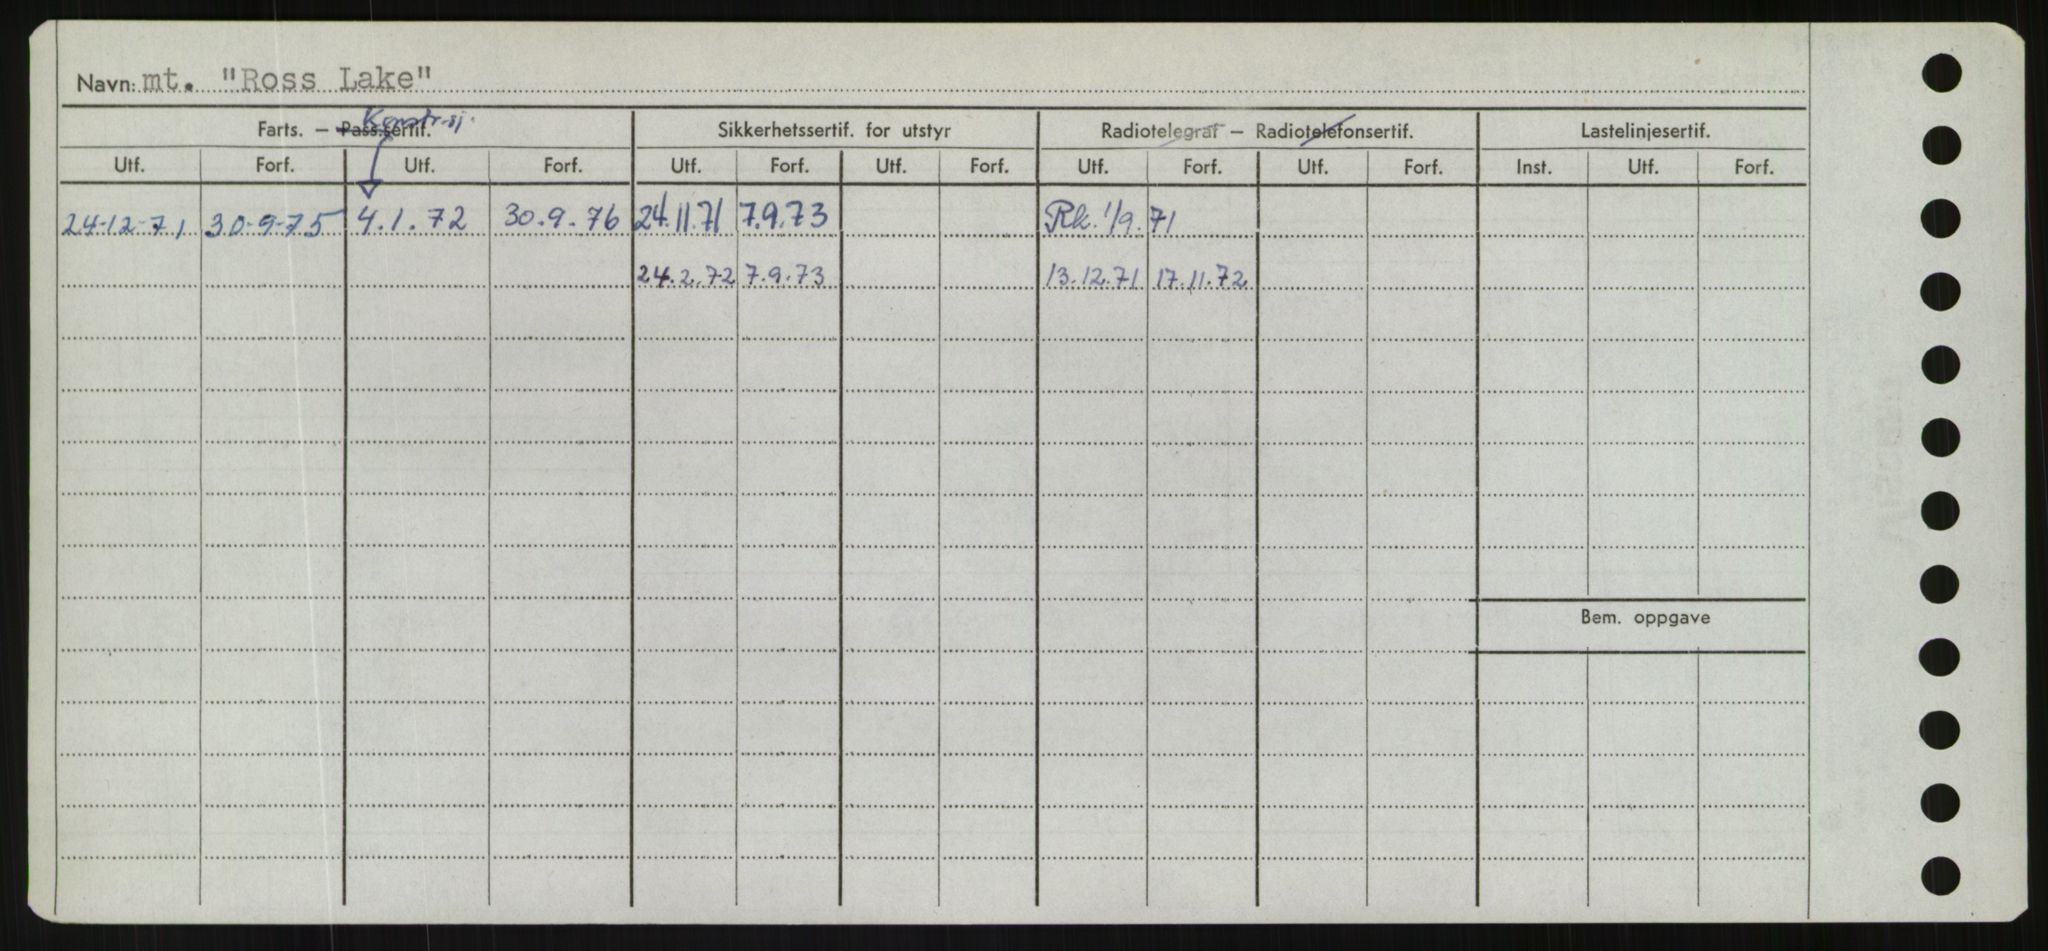 Navn: mt. "Ross Lake"
Konstr.sj.
Farts. — Pass.sertif. Sikkerhetssertif. for utstyr Radiotelegraf — Radiotelefonsertif. Lastelinjesertif.
Utf. Forf. Utf. Forf. Utf. Forf. Utf. Forf. Utf. Forf. Utf. Forf. Inst. Utf. Forf.
24-12-71 30-9-75 4.1.72 30.9.76 24.11.71 7.9.73 Rk. 1/9.71
24.2.72 7.9.73 13.12.71 17.11.72
Bem. oppgave